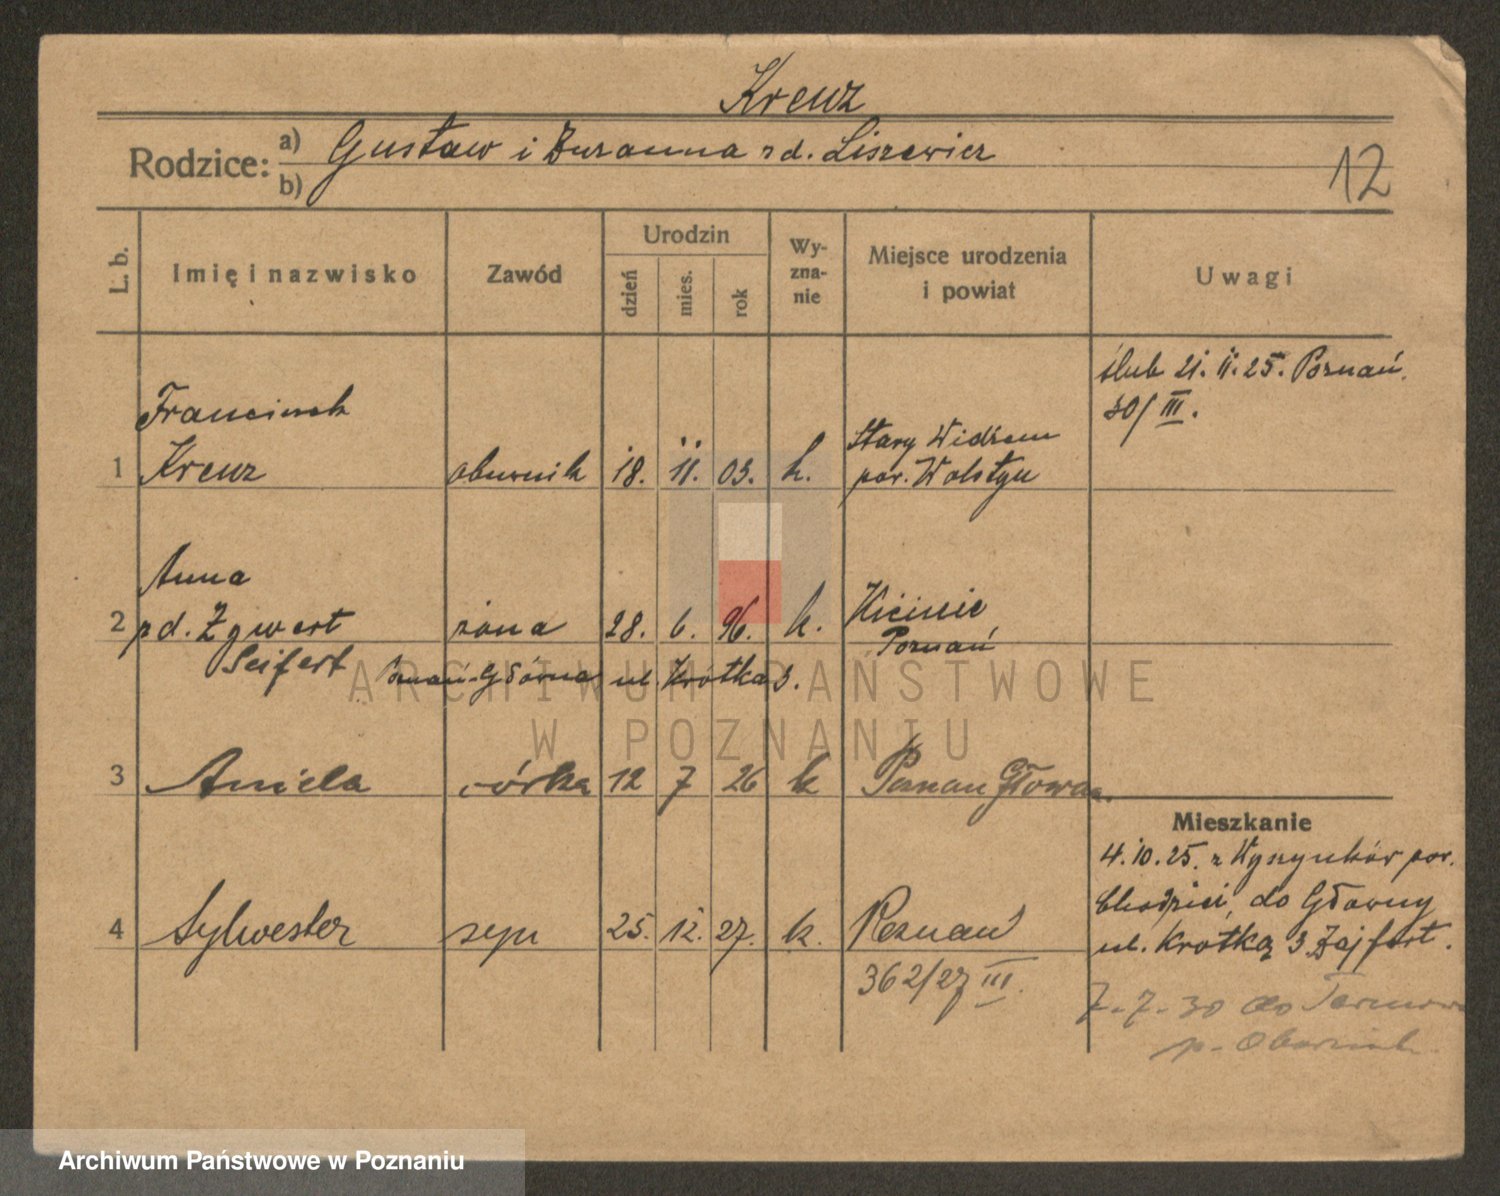 Kreuz
Rodzice: a) Gustaw i Zuzanna zd. Liszewicz
b)
12
L. b.
Imię i nazwisko
Zawód
Urodzin
dzień
mies.
rok
Wy-
zna-
nie
Miejsce urodzenia
i powiat
Uwagi
ślub 21. 11. 25. Poznań.
30/III.
Franciszek
1 Kreuz obuwnik 18. 11. 03. k. Stary Widzim
pow. Wolsztyn
Anna
2 zd. Zywert żona 28. 6. 96. k. Kicinie
Poznań
Seifert Poznań-Główna ul Krótka 3.
3 Aniela córka 12 7 26 k Poznan Główna.
Mieszkanie
4. 10. 25. z Wyszynków pow.
Chodzież, do Główny
ul. Krótką 3 Zajfert.
4 Sylwester syn 25. 12. 27. k. Poznań
362/27 III.
7-7-30 do
p. Obornik
ARCHIWUM PAŃSTWOWE
W POZNANIU
Archiwum Państwowe w Poznaniu